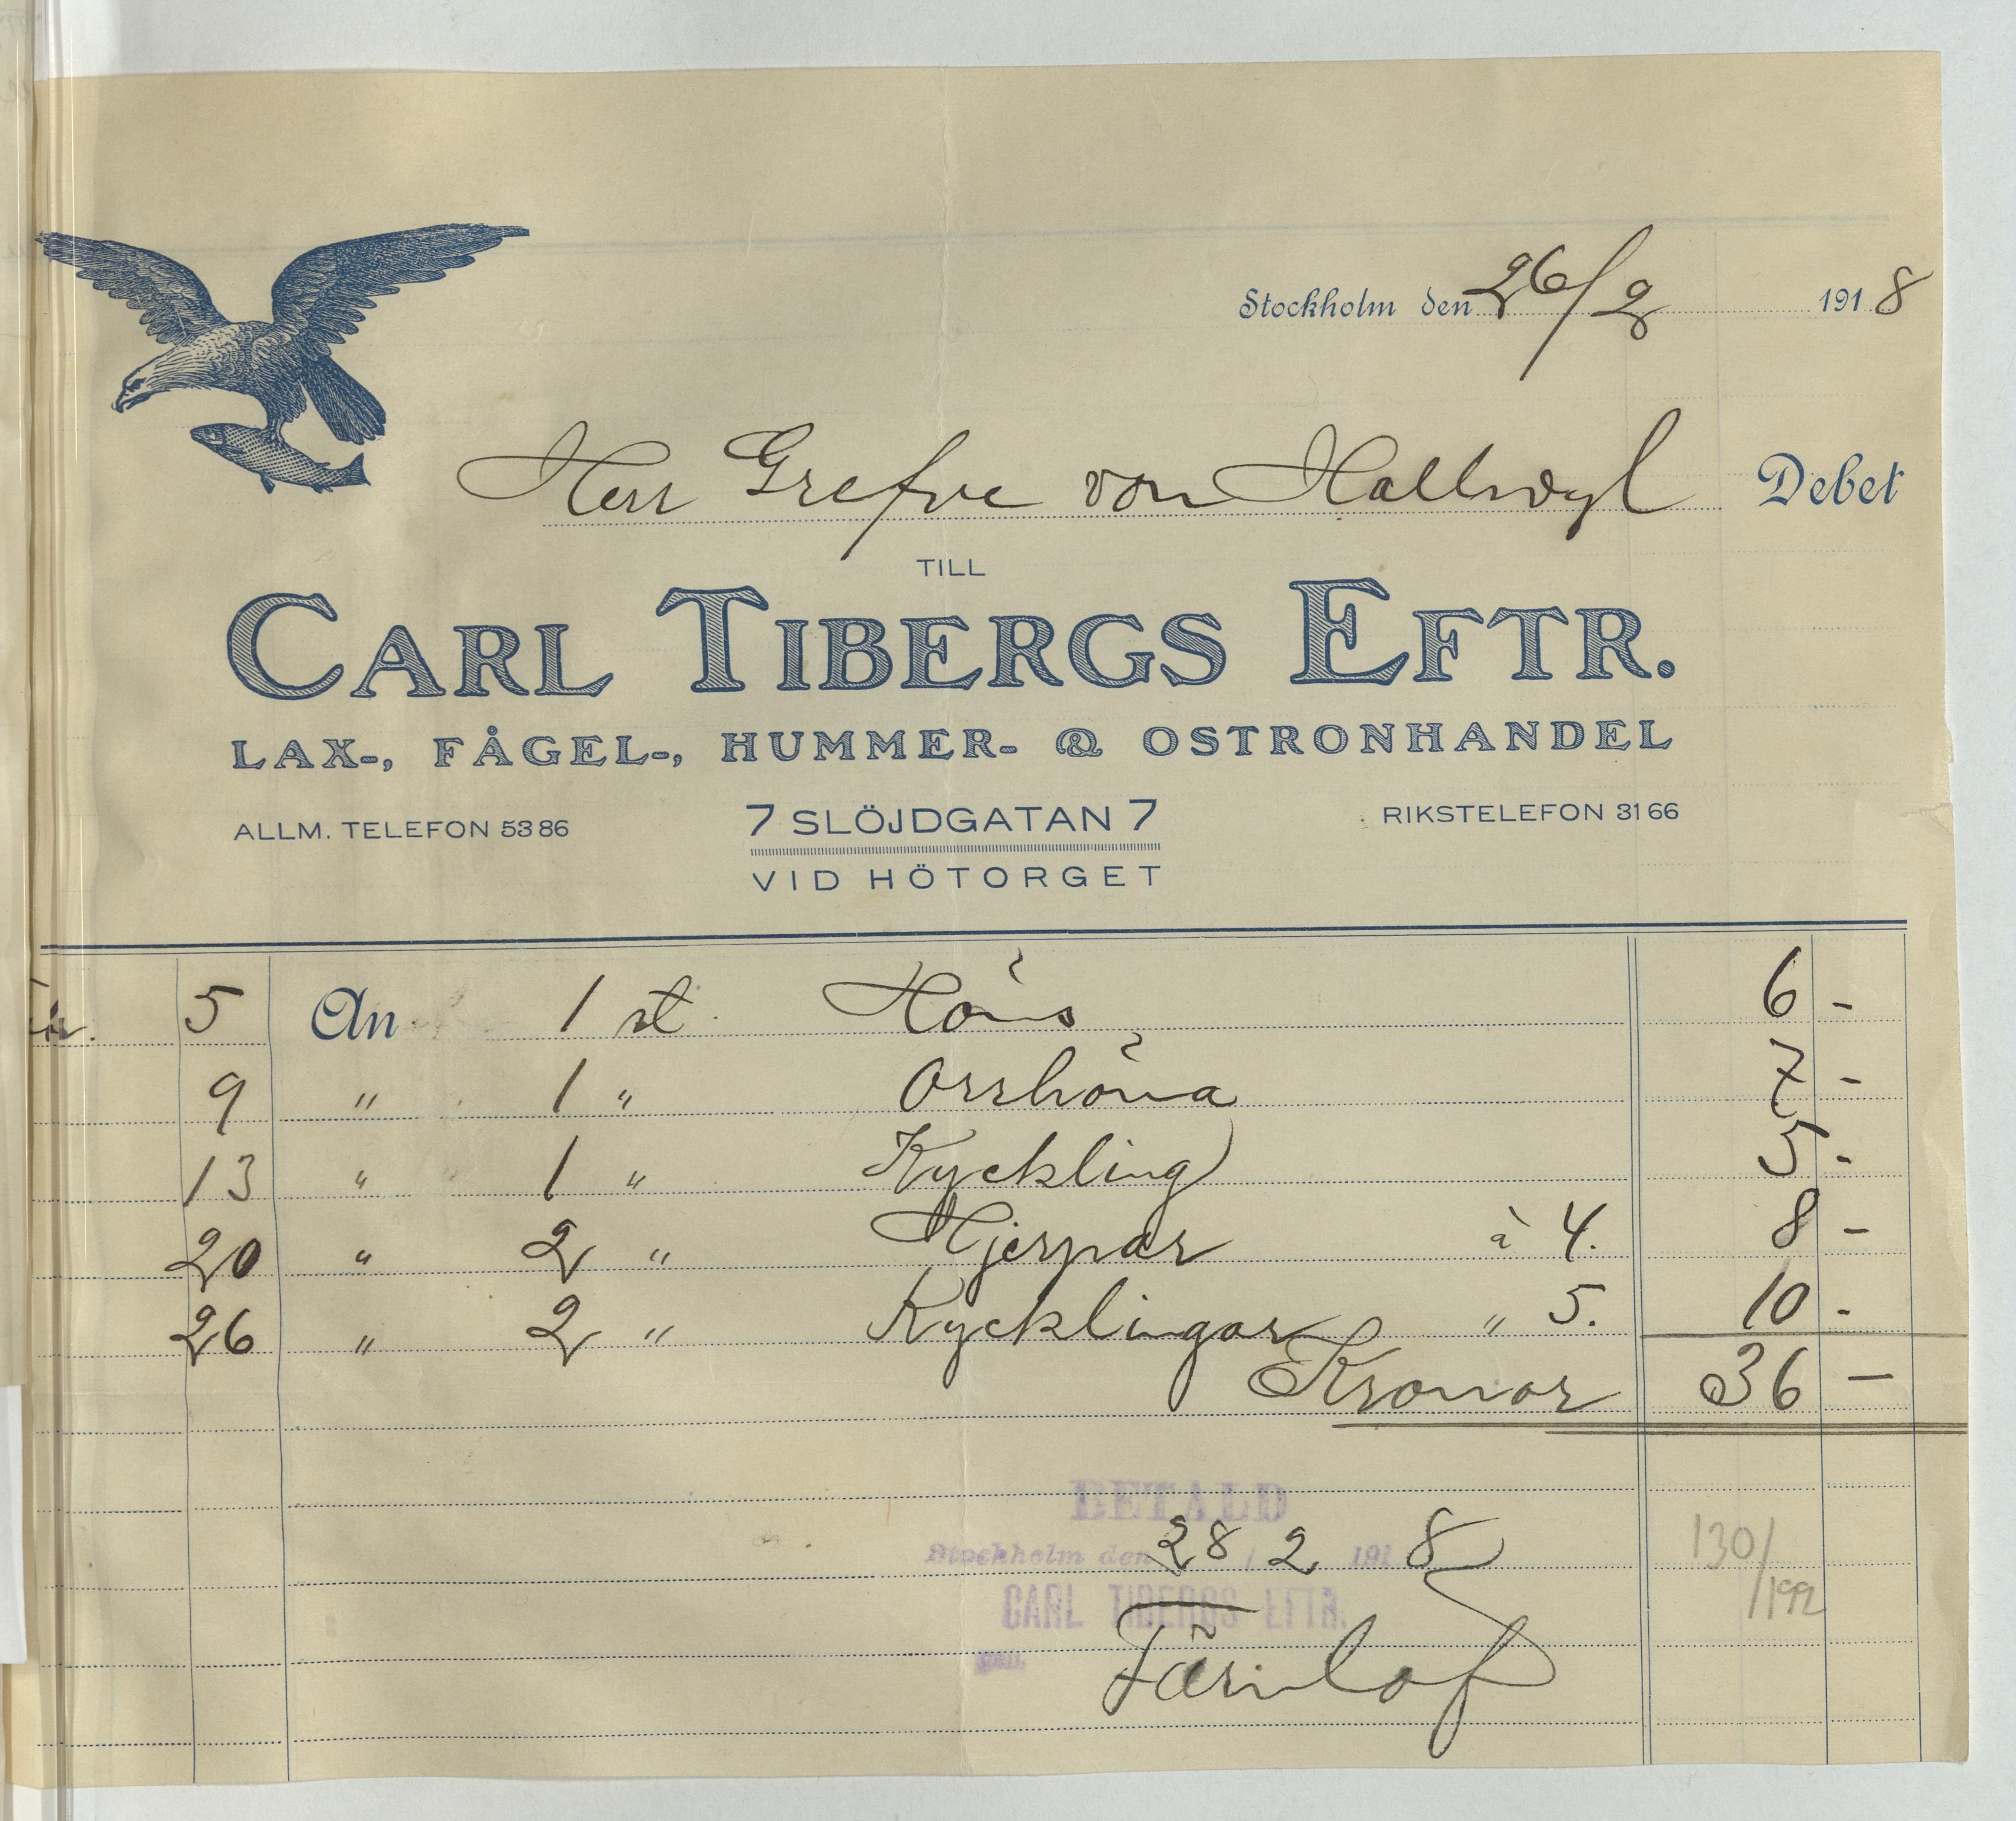 Stockholm den 26/2 1918
Herr Grefve von Hallwyl Debet
TILL
CARL TIBERGS EFTR.
LAX-, FÅGEL-, HUMMER- & OSTRONHANDEL
ALLM. TELEFON 53 86 7 SLÖJDGATAN 7 RIKSTELEFON 31 66
VID HÖTORGET
5 An 1 st Höns 6 -
9 " 1 " Orrhöna 7 -
13 " 1 " Kyckling 5 -
20 " 2 " Hjerpar à 4. 8 -
26 " 2 " Kycklingar " 5. 10 -
Kronor 36 -
BETALD
Stockholm den 28 / 2 1918
CARL TIBERGS EFTR.
130/
/199